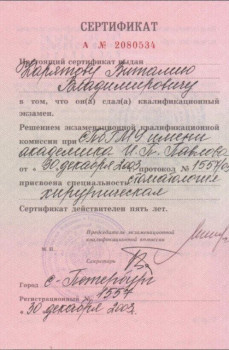 СЕРТИФИКАТ
А № 2080534
Настоящий сертификат выдан
Виталию
Владимировичу
в том, что он(а) сдал(а) квалификационный
экзамен.
Решением экзаменационной квалификационной
комиссии при СПбГМУ имени
академика И.П. Павлова
от « 30 декабря 2003 протокол № 1557/03
присвоена специальность стоматология
хирургическая
Сертификат действителен пять лет.
Председатель экзаменационной
квалификационной комиссии
М.П.
Город С-Петербург
Регистрационный № 1557
« 30 декабря 2003